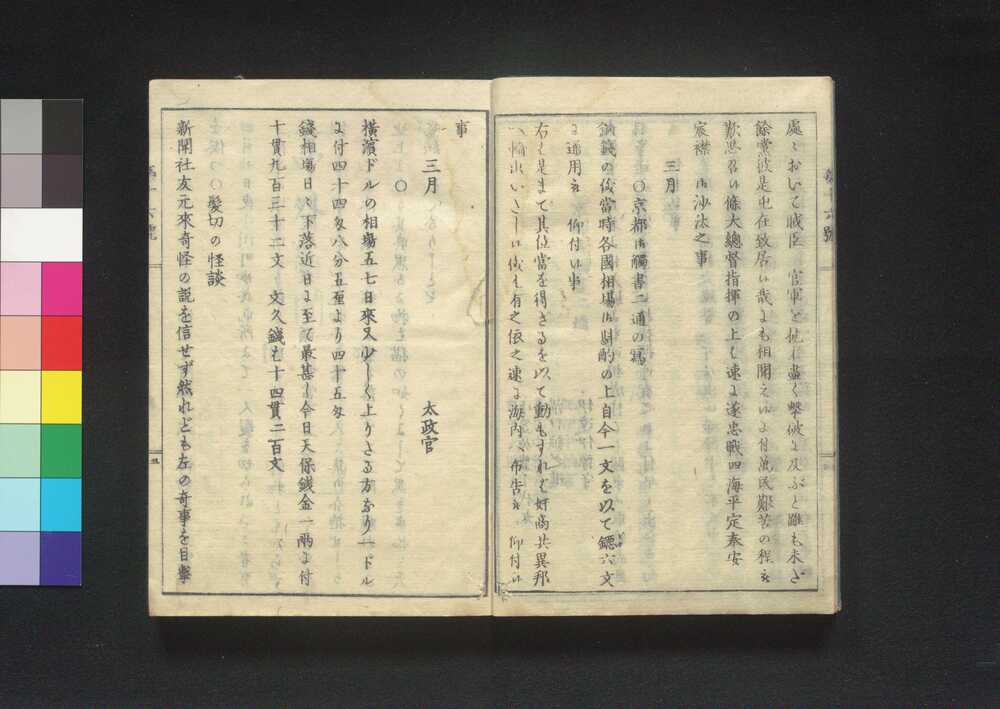 處ニおいて賊臣　官軍ど抗し盡く撃破ニ及ぶと雖も未だ
餘黨彼是屯在致居候哉にも相聞え候に付萬民艱苦の程を
歎思召候條大總督指揮の上ハ速よ遂忠戰四海平定奉安
宸襟　候御沙汰之事
三月
〇京都御觸書二通の寫
銅錢の儀當時各國相場御斟酌の上自今一文を以て鐚六文
に通用被　仰付候事
右ハ是まて其位當を得さるを以て動もすれハ奸商共異邦
へ輸出いたし候儀も有之依之速よ海内へ布告被　仰付候
事
三月
太政官
〇
横濱ドルの相場五七日來又少しく上りたる方なり一ドル
よ付四十四匁八分五厘より四十五匁
錢相場日々下落近日よ至て最甚し今日天保錢金一兩よ付
十貫九百三十二文　文久錢も十四貫二百文
〇髪切の怪談
新聞社友元來奇怪の説を信せず然れども左の奇事を目撃
第十六號
五